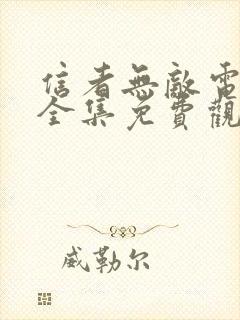 信者無敵電
全集免費觀
威勒尔